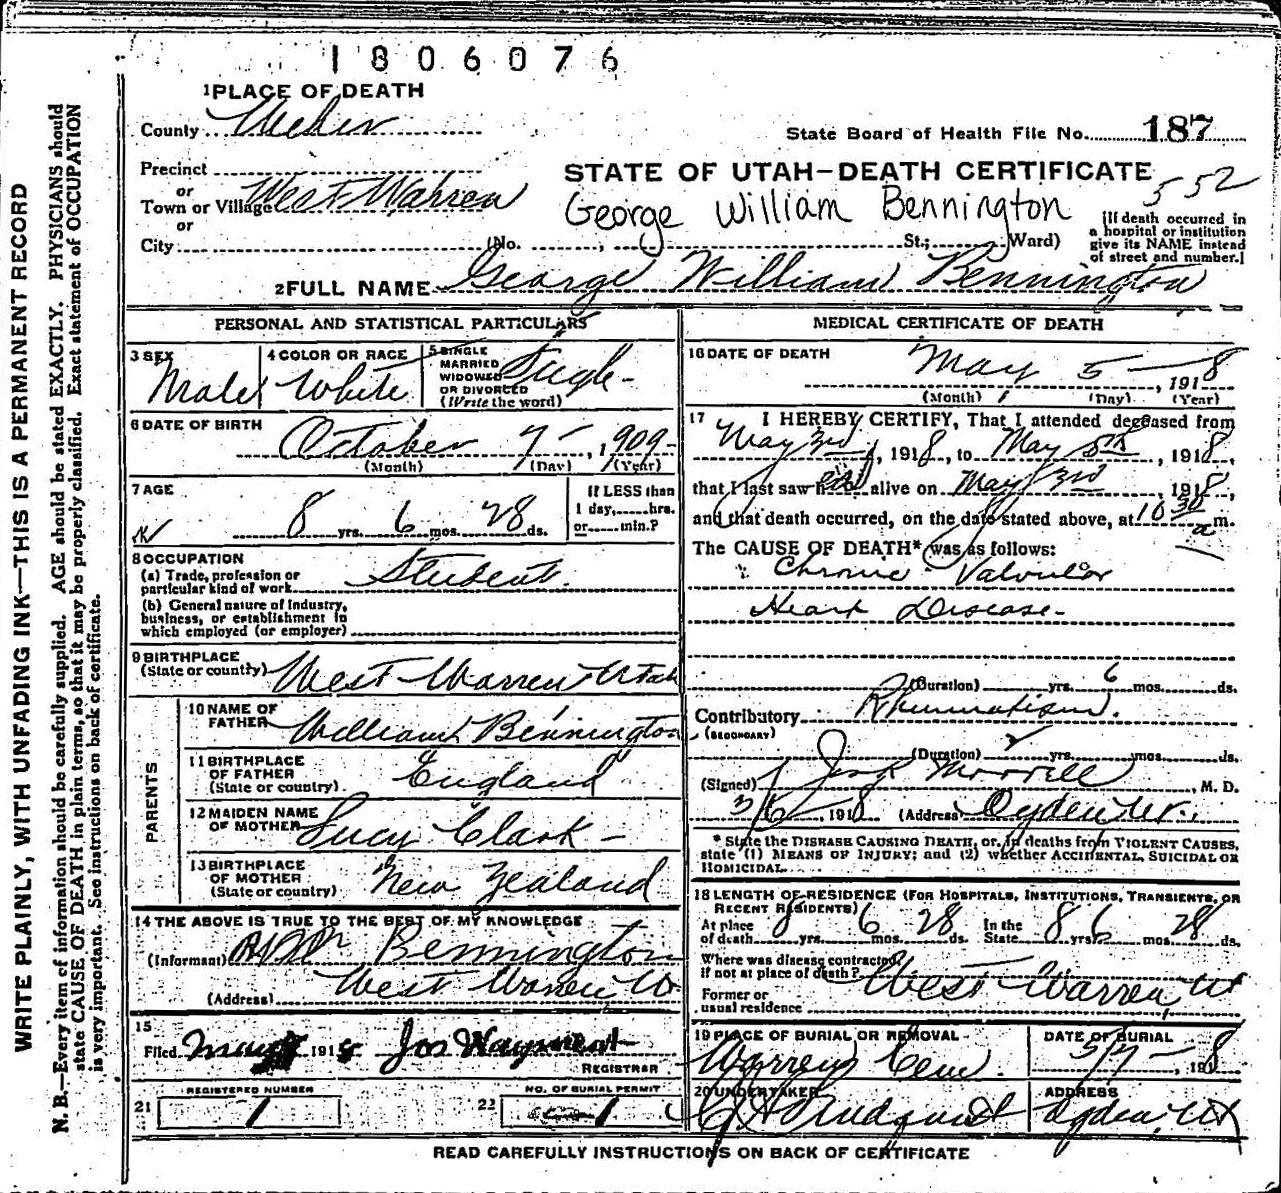 1806076
1 PLACE OF DEATH
County Weber
State Board of Health File No. 187
Precinct
or
Town or Village West Warren
or
City (No. , St.; Ward)
STATE OF UTAH—DEATH CERTIFICATE
552
George William Bennington
[If death occurred in
a hospital or institution
give its NAME instead
of street and number.]
2 FULL NAME George William Bennington
PERSONAL AND STATISTICAL PARTICULARS
3 SEX
Male
4 COLOR OR RACE
White
5 SINGLE
MARRIED
WIDOWED
OR DIVORCED
(Write the word)
Single
6 DATE OF BIRTH
October 7 , 1909
(Month) (Day) (Year)
7 AGE
8 yrs. 6 mos. 28 ds.
If LESS than
1 day, hrs.
or min.?
8 OCCUPATION
(a) Trade, profession or
particular kind of work Student
(b) General nature of Industry,
business, or establishment in
which employed (or employer)
9 BIRTHPLACE
(State or country) West Warren Utah
PARENTS
10 NAME OF
FATHER William Bennington
11 BIRTHPLACE
OF FATHER
(State or country) England
12 MAIDEN NAME
OF MOTHER Lucy Clark
13 BIRTHPLACE
OF MOTHER
(State or country) New Zealand
14 THE ABOVE IS TRUE TO THE BEST OF MY KNOWLEDGE
(Informant) Bennington
(Address) West Warren Ut
15
Filed May 1918 Jos Wayment
REGISTRAR
REGISTERED NUMBER
21 1
NO. OF BURIAL PERMIT
22 1
MEDICAL CERTIFICATE OF DEATH
16 DATE OF DEATH
May 5 , 1918
(Month) (Day) (Year)
17 I HEREBY CERTIFY, That I attended deceased from
May 3rd , 1918, to May 5th , 1918,
that I last saw h alive on May 3rd , 1918,
and that death occurred, on the date stated above, at 10 30 a m.
The CAUSE OF DEATH* was as follows:
Chronic Valvular
Heart Disease
(Duration) yrs. 6 mos. ds.
Contributory Rheumatism.
(SECONDARY)
(Duration) 2 yrs. mos. ds.
(Signed) Morrell , M. D.
, 1918 (Address) Ogden Ut.
* State the DISEASE CAUSING DEATH, or, in deaths from VIOLENT CAUSES,
state (1) MEANS OF INJURY; and (2) whether ACCIDENTAL, SUICIDAL OR
HOMICIDAL.
18 LENGTH OF RESIDENCE (FOR HOSPITALS, INSTITUTIONS, TRANSIENTS, OR
RECENT RESIDENTS)
At place
of death 8 yrs. 6 mos. 28 ds.
In the
State 8 yrs. 6 mos. 28 ds.
Where was disease contracted,
if not at place of death? West Warren Ut
Former or
usual residence
19 PLACE OF BURIAL OR REMOVAL
Warren Cem.
DATE OF BURIAL
5/7 , 1918
20 UNDERTAKER
ADDRESS
Ogden, Ut
READ CAREFULLY INSTRUCTIONS ON BACK OF CERTIFICATE
WRITE PLAINLY, WITH UNFADING INK—THIS IS A PERMANENT RECORD
N. B.—Every item of information should be carefully supplied. AGE should be stated EXACTLY. PHYSICIANS should
state CAUSE OF DEATH in plain terms, so that it may be properly classified. Exact statement of OCCUPATION
is very important. See instructions on back of certificate.